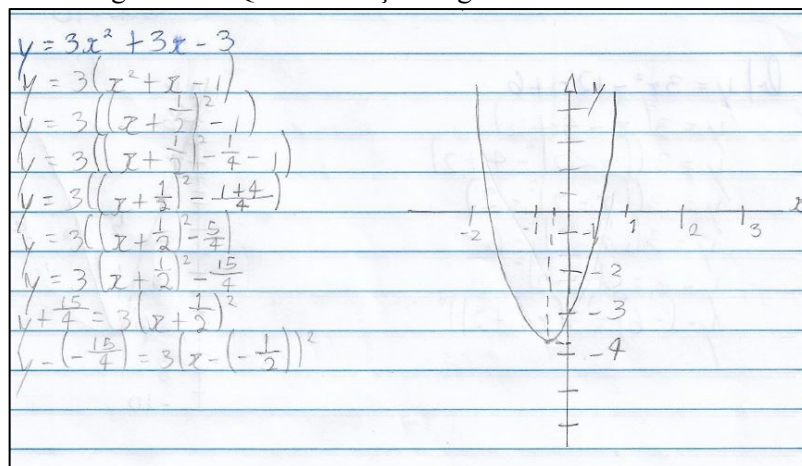 y = 3x² + 3x - 3
y = 3(x² + x - 1)
y = 3((x + 1/2)² - 1)
y = 3((x + 1/2)² - 1/4 - 1)
y = 3((x + 1/2)² - (1+4)/4)
y = 3((x + 1/2)² - 5/4)
y = 3(x + 1/2)² - 15/4
y + 15/4 = 3(x + 1/2)²
y - (-15/4) = 3(x - (-1/2))²
y
x
-2 -1 1 2 3
-1
-2
-3
-4